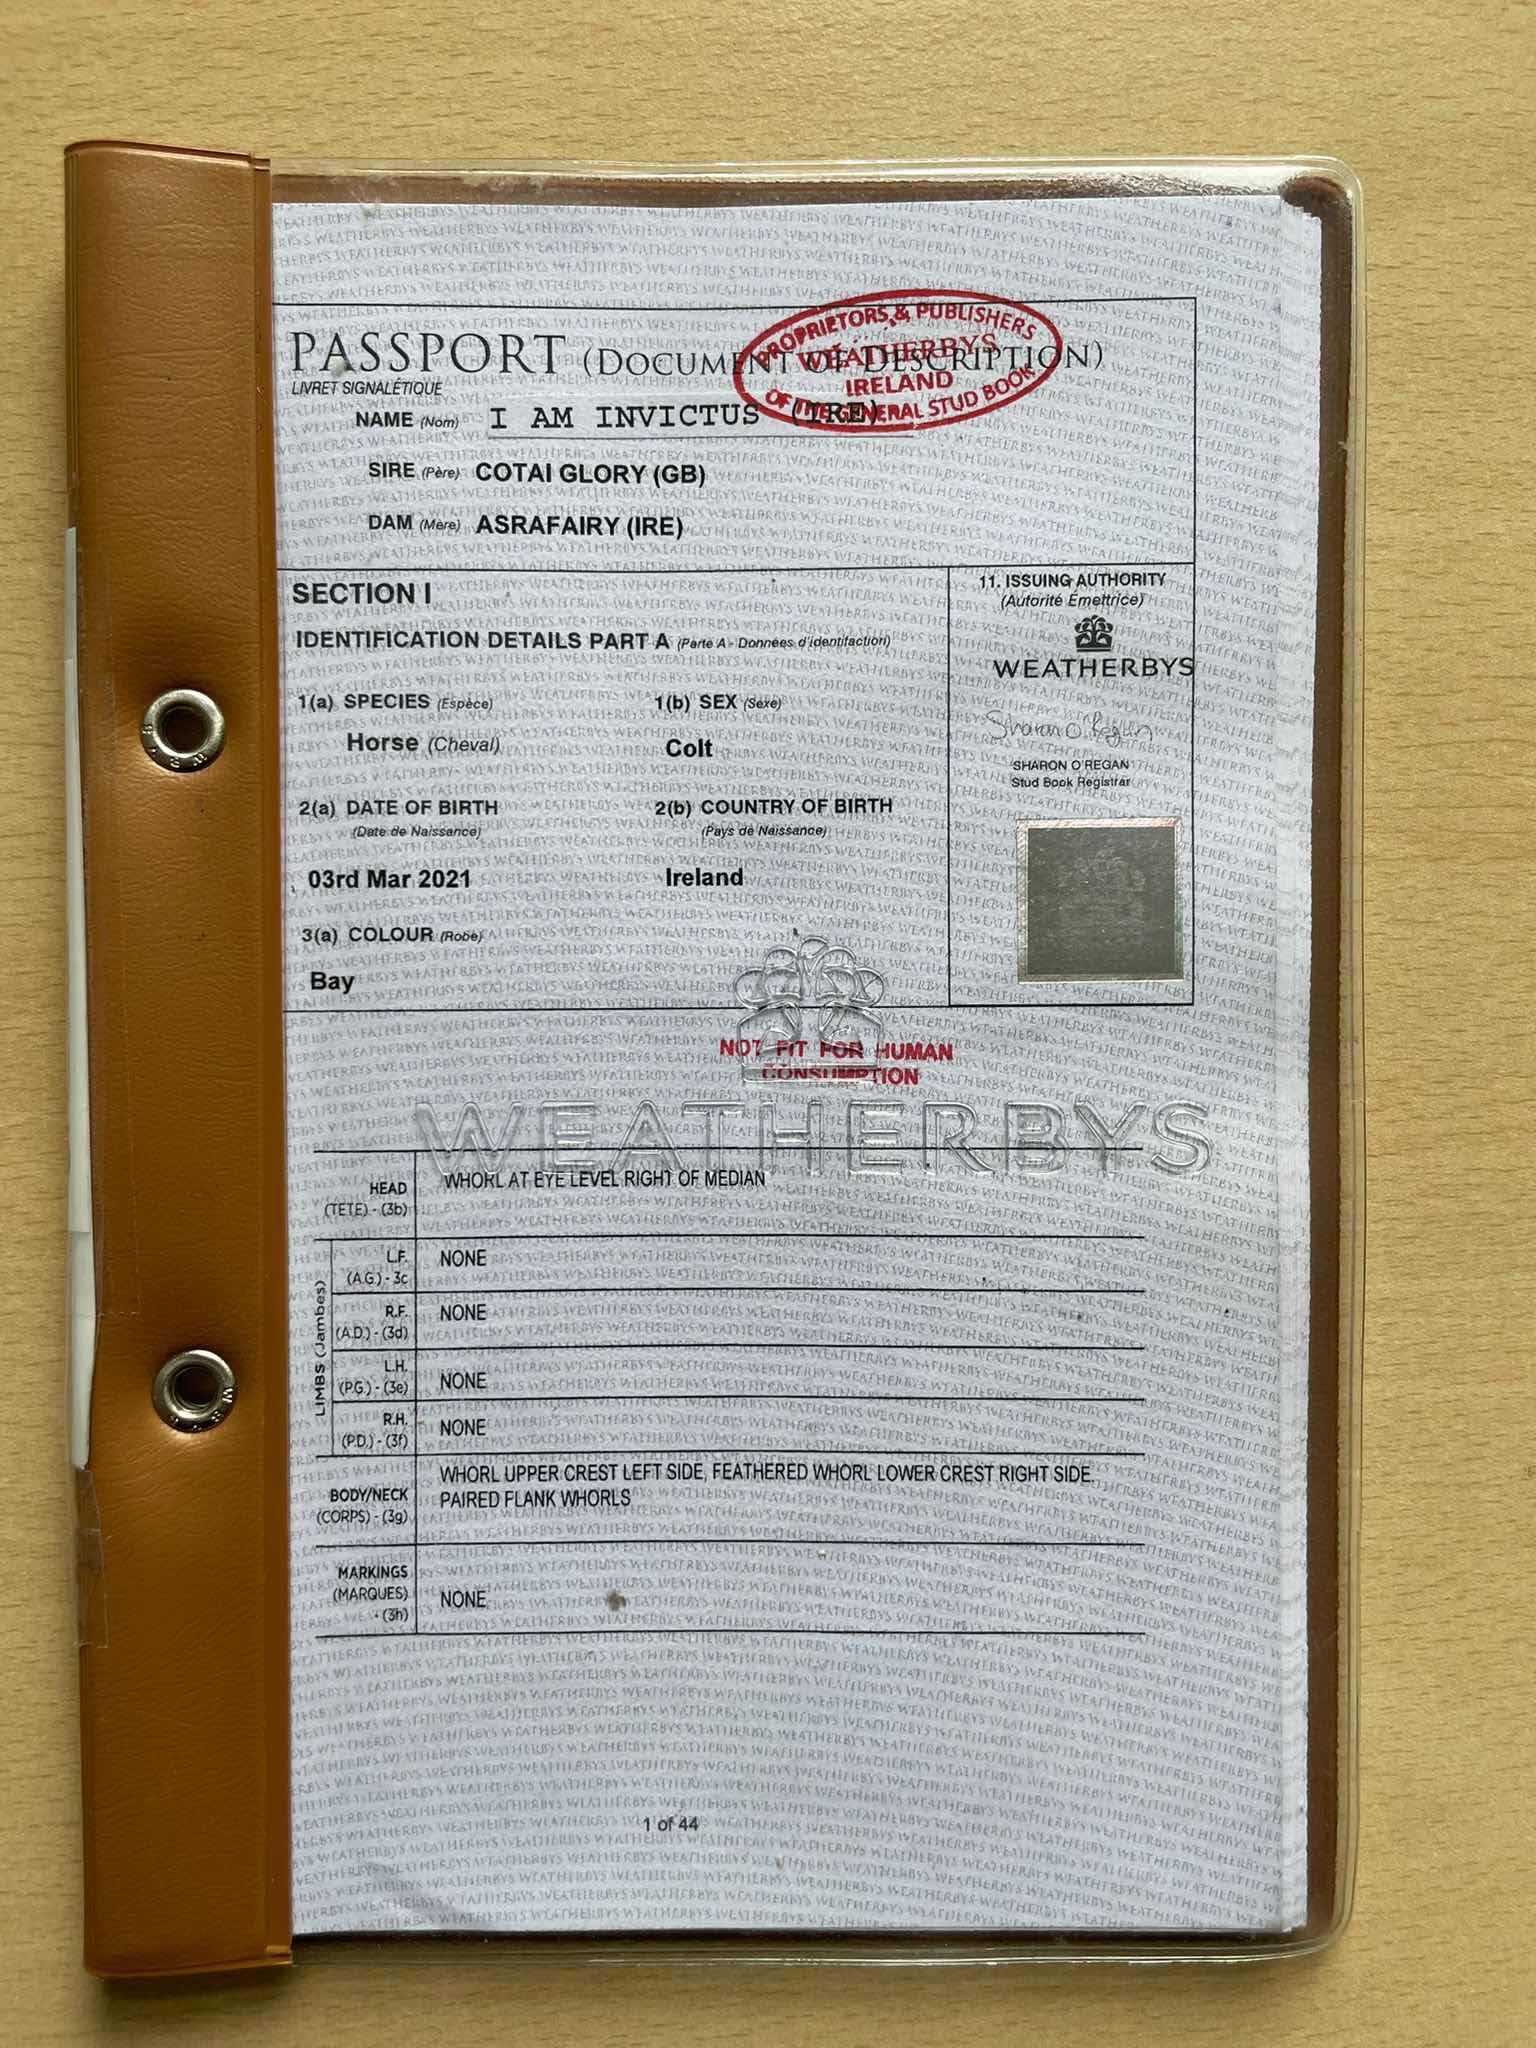 PASSPORT (DOCUMENT OF DESCRIPTION)
LIVRET SIGNALÉTIQUE
PROPRIETORS & PUBLISHERS
WEATHERBYS
IRELAND
OF THE GENERAL STUD BOOK
NAME (Nom) I AM INVICTUS (IRE)
SIRE (Père) COTAI GLORY (GB)
DAM (Mère) ASRAFAIRY (IRE)
SECTION I
IDENTIFICATION DETAILS PART A (Parte A - Données d'identifaction)
11. ISSUING AUTHORITY
(Autorité Émettrice)
WEATHERBYS
Sharon O'Regan
SHARON O'REGAN
Stud Book Registrar
1(a) SPECIES (Espèce) 1(b) SEX (Sexe)
Horse (Cheval) Colt
2(a) DATE OF BIRTH 2(b) COUNTRY OF BIRTH
(Date de Naissance) (Pays de Naissance)
03rd Mar 2021 Ireland
3(a) COLOUR (Robe)
Bay
NOT FIT FOR HUMAN
CONSUMPTION
WEATHERBYS
HEAD WHORL AT EYE LEVEL RIGHT OF MEDIAN
(TETE) - (3b)
LIMBS (Jambes)
L.F. NONE
(A.G.) - 3c
R.F. NONE
(A.D.) - (3d)
L.H. NONE
(P.G.) - (3e)
R.H. NONE
(P.D.) - (3f)
WHORL UPPER CREST LEFT SIDE, FEATHERED WHORL LOWER CREST RIGHT SIDE.
BODY/NECK PAIRED FLANK WHORLS
(CORPS) - (3g)
MARKINGS
(MARQUES) NONE
(3h)
1 of 44